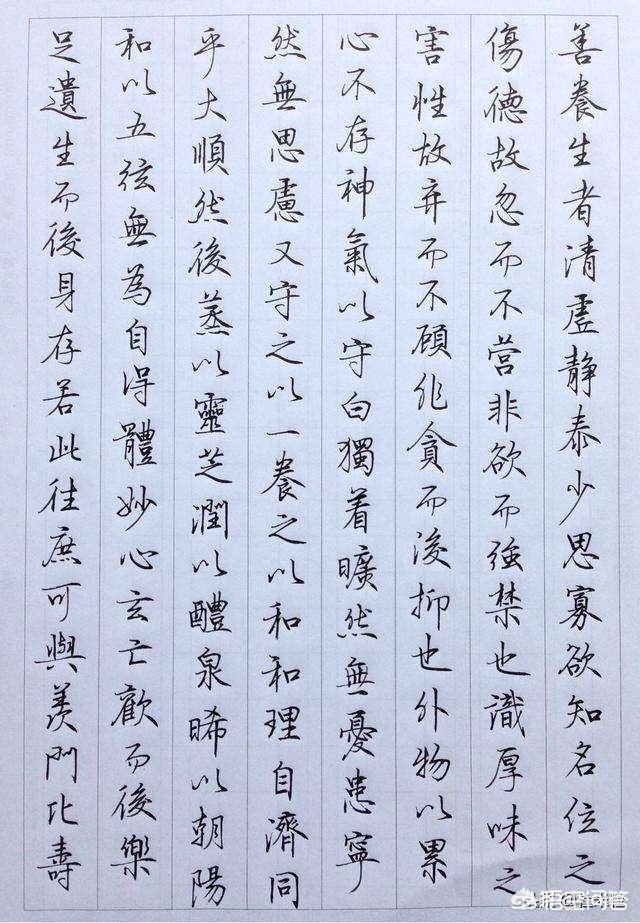 善養生者清虛静泰少思寡欲知名位之
傷德故忽而不营非欲而強禁也識厚味之
害性故弃而不顾非貪而後抑也外物以累
心不存神氣以守白獨着曠然無憂患寧
然無思慮又守之以一養之以和和理自濟同
乎大順然後蒸以靈芝潤以醴泉晞以朝陽
和以五弦無為自得體妙心玄亡歡而後樂
足遺生而後身存若此往庶可與羡門比壽